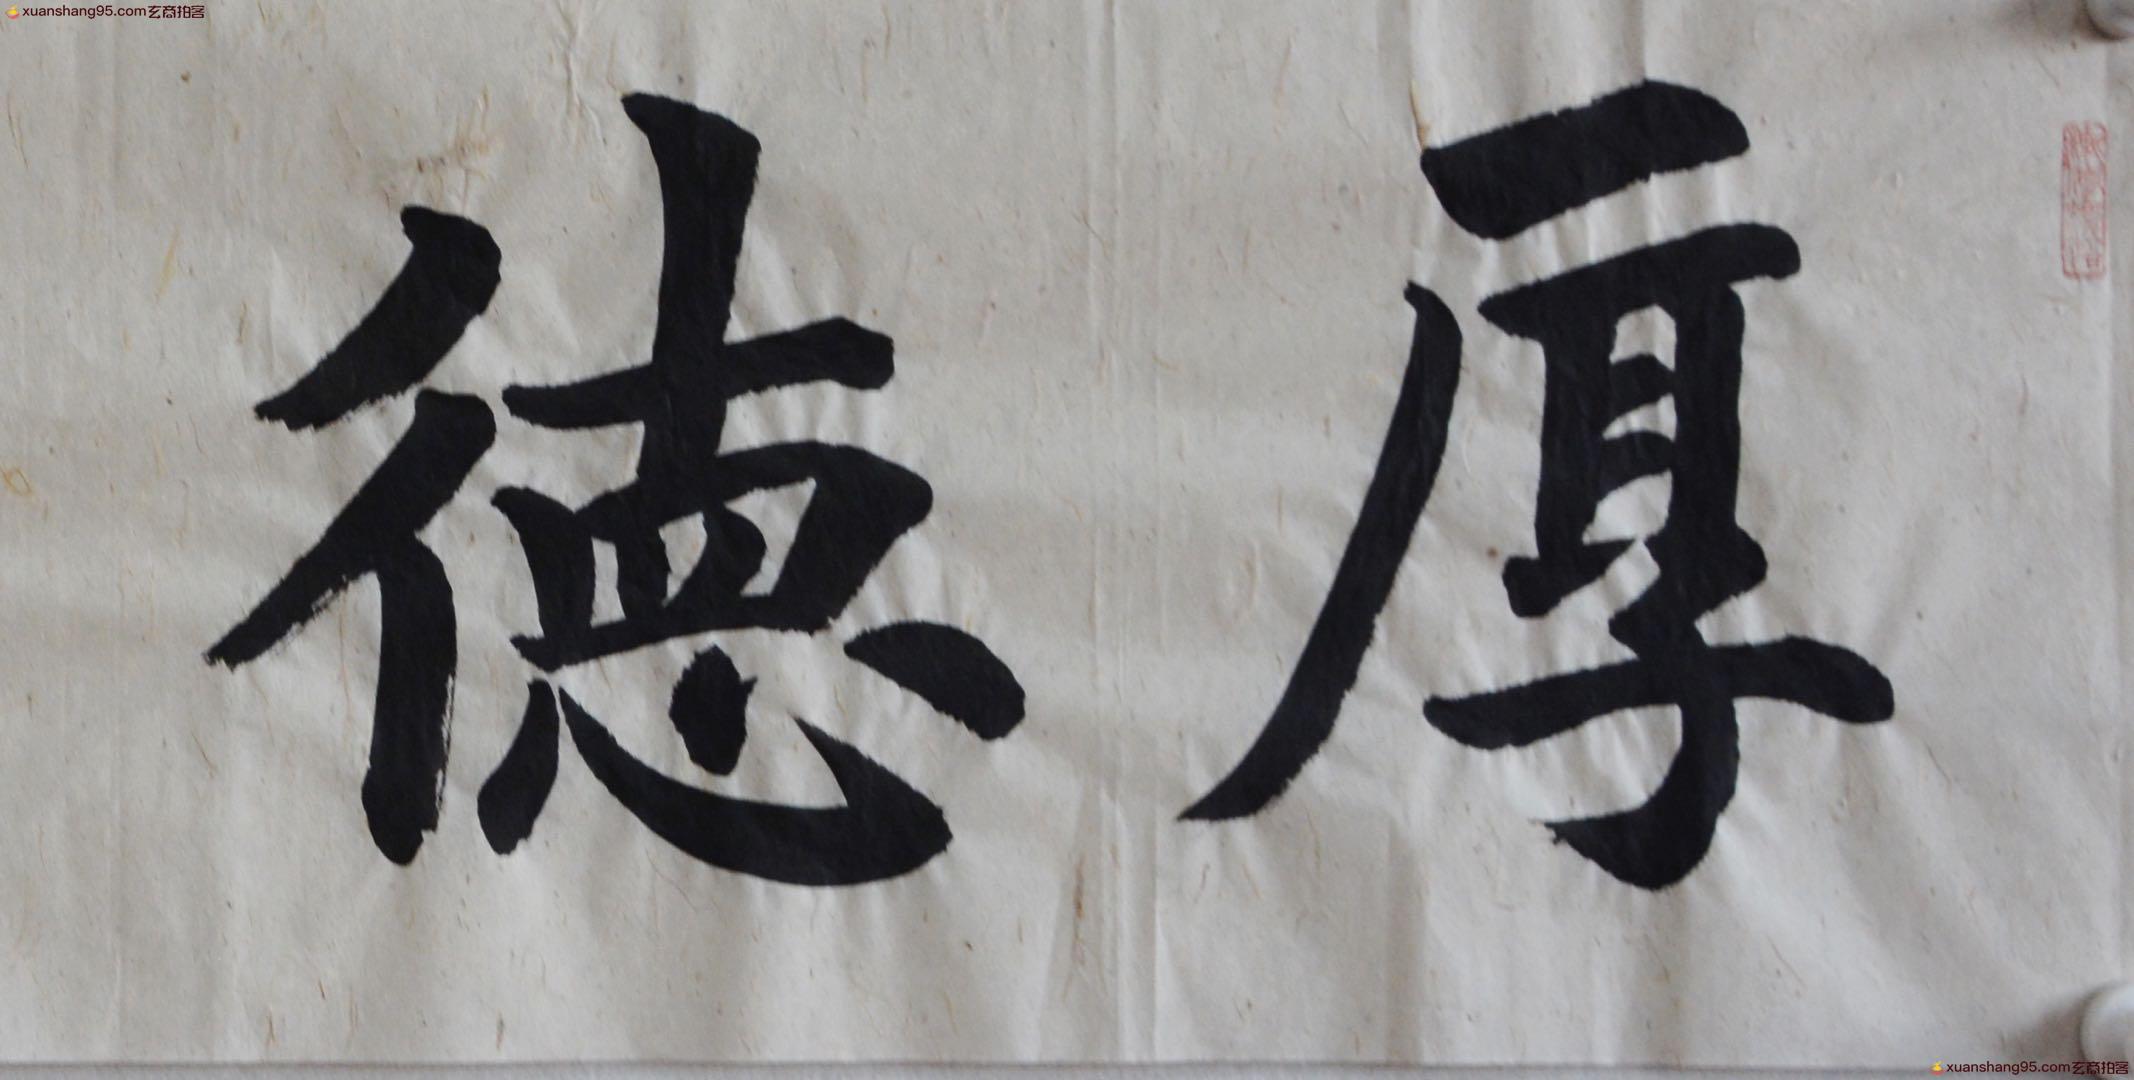 xuanshang95.com玄商拍客
厚德
xuanshang95.com玄商拍客